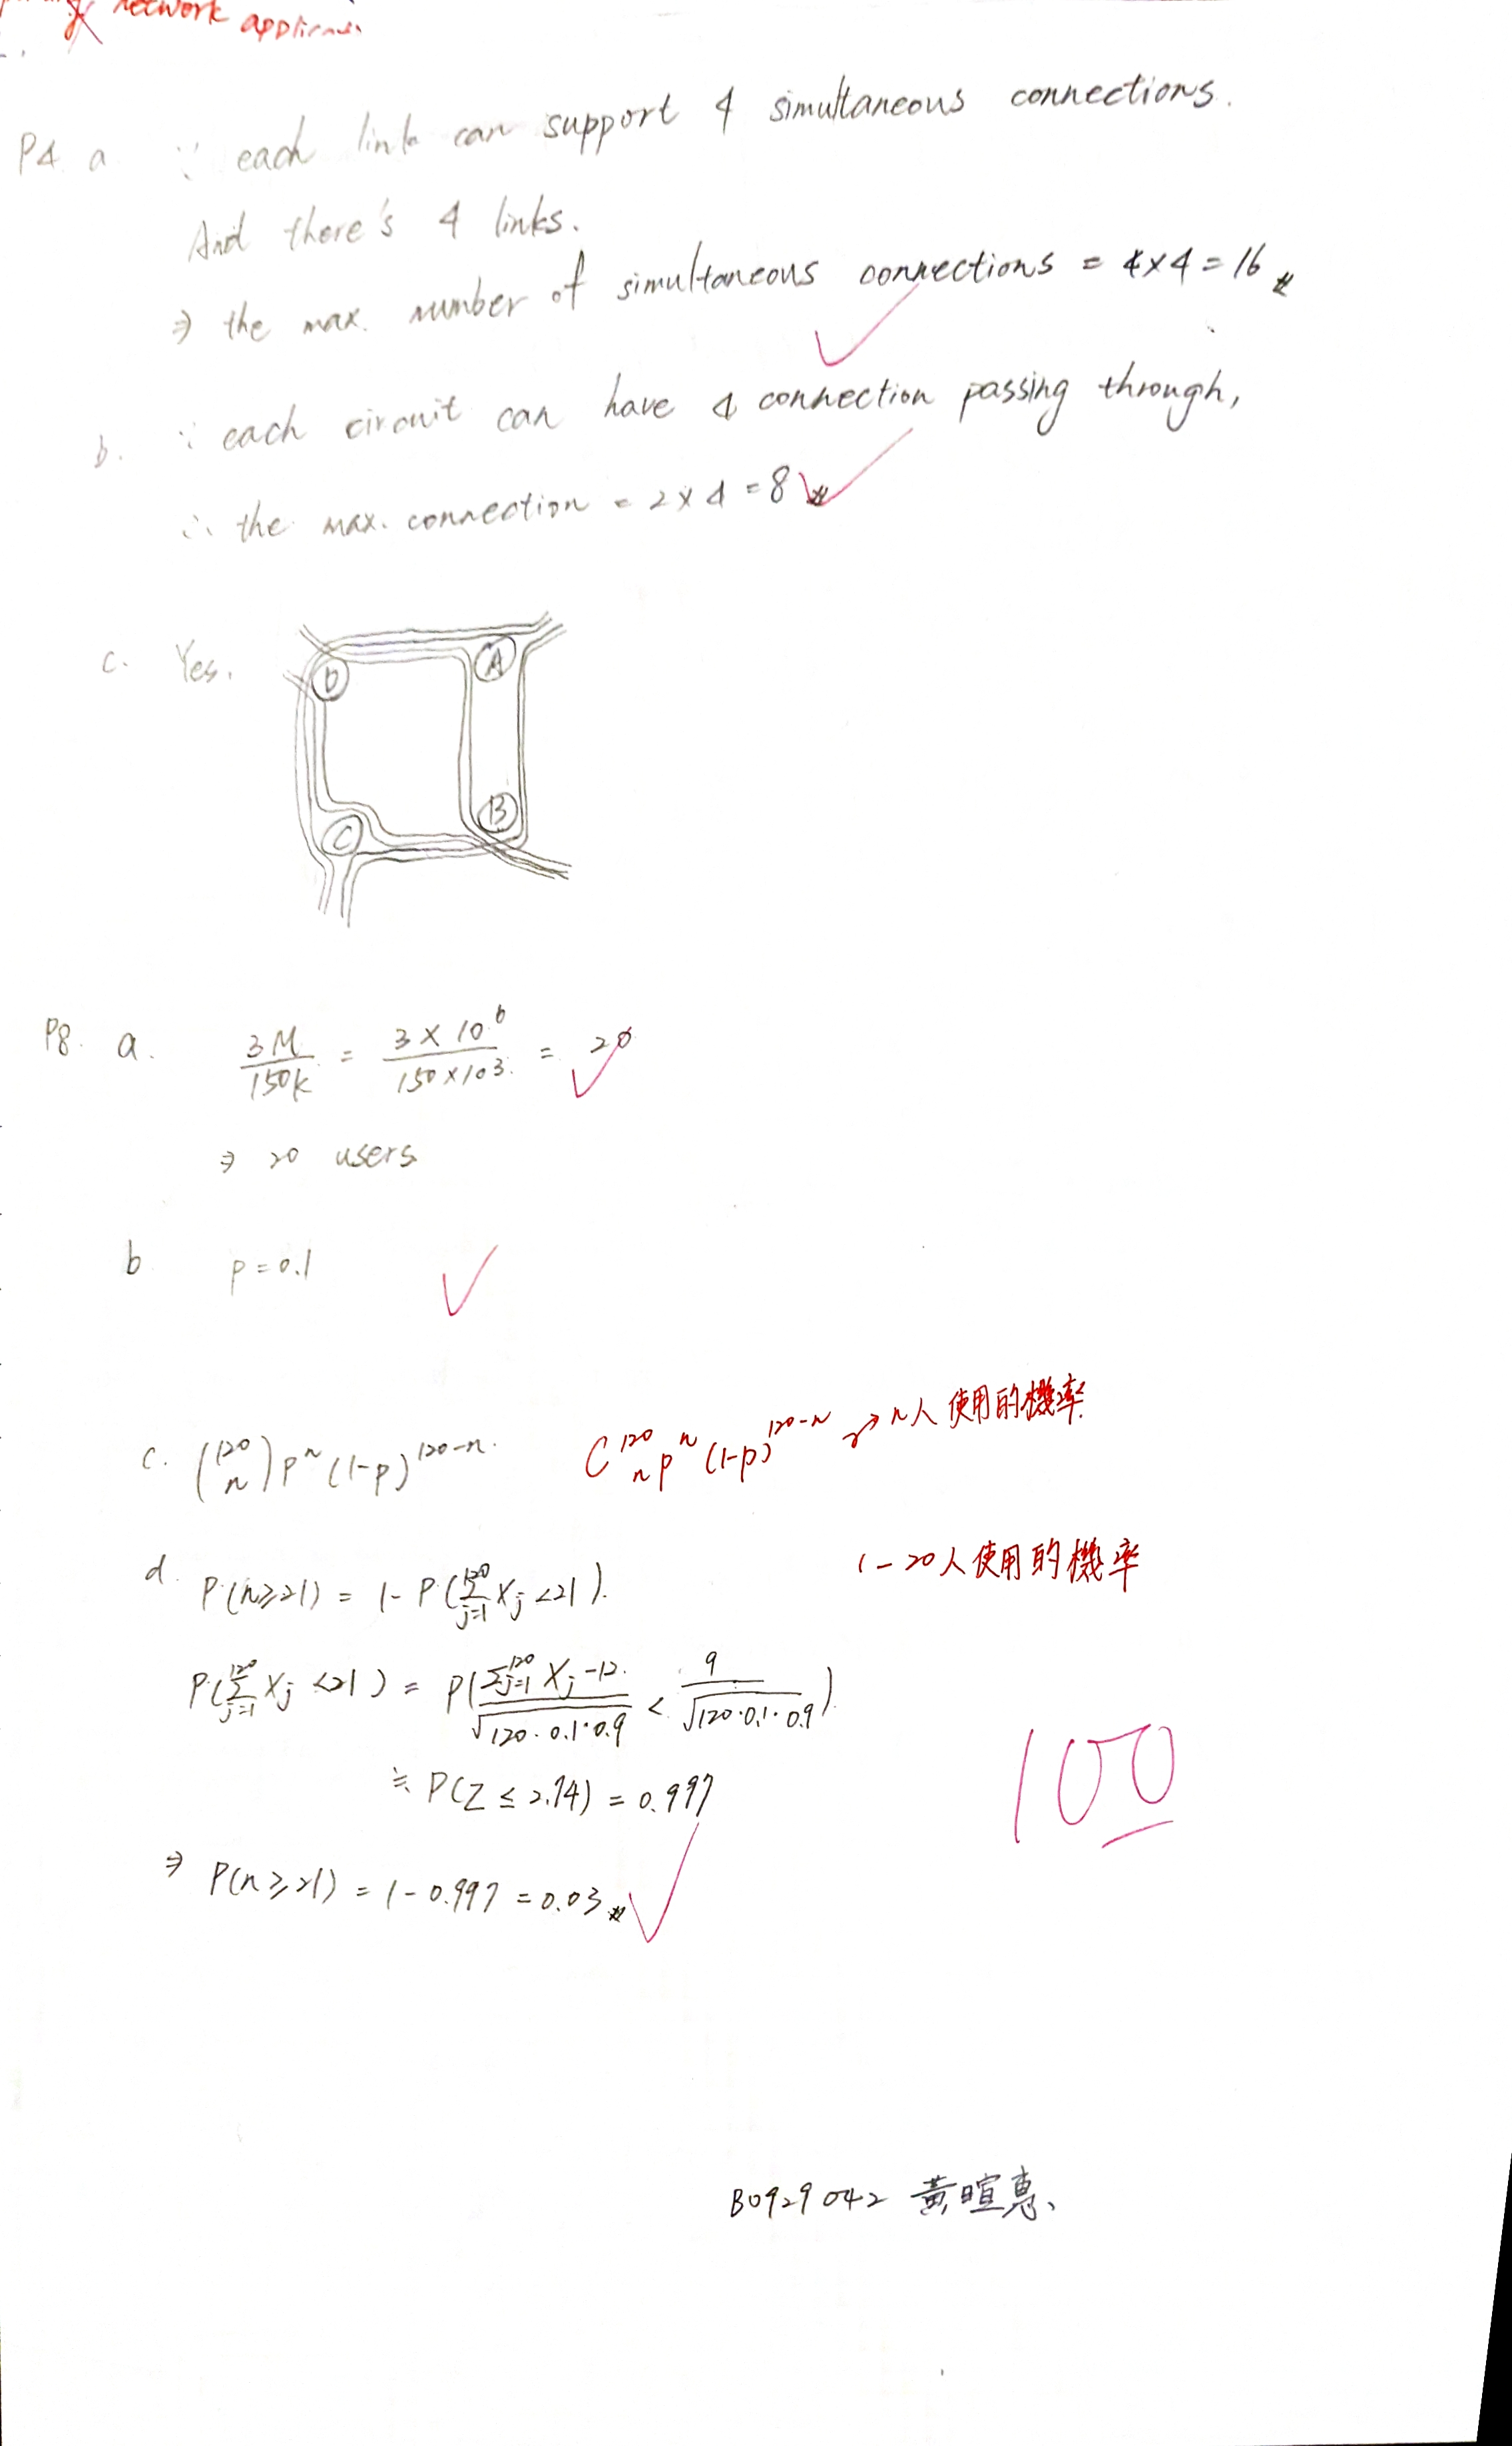 network applicati
P4. a ∵ each link can support 4 simultaneous connections.
And there's 4 links.
⇒ the max. number of simultaneous connections = 4×4=16 #
b. ∵ each circuit can have 4 connection passing through,
∴ the max. connection = 2×4=8 #
c. Yes.
D A
C B
P8. a. 3M/150k = 3×10^6/150×10^3 = 20
⇒ 20 users
b p=0.1
c. (120 n) p^n (1-p)^120-n. C^120_n p^n (1-p)^120-n → n人使用的機率
d. P(n≥21) = 1-P(∑_{j=1}^{120} Xj <21). 1-20人使用的機率
P(∑_{j=1}^{120} Xj <21) = P(∑_{j=1}^{120} Xj -12 / √120·0.1·0.9 < 9 / √120·0.1·0.9)
≒ P(Z ≤ 2.74) = 0.997
⇒ P(n≥21) = 1-0.997 = 0.03 #
100
B0929042 黃暄惠